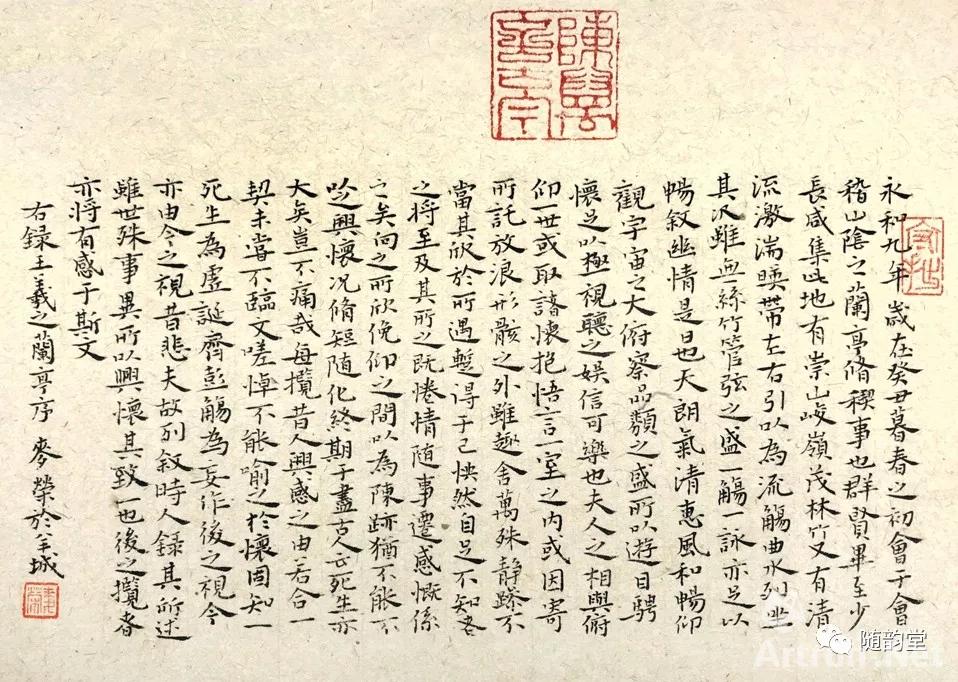 永和九年歲在癸丑暮春之初會于會
稽山陰之蘭亭脩稧事也群賢畢至少
長咸集此地有崇山峻嶺茂林竹又有清
流激湍暎帶左右引以為流觴曲水列坐
其次雖無絲竹管弦之盛一觴一詠亦足以
暢叙幽情是日也天朗氣清惠風和暢仰
觀宇宙之大俯察品類之盛所以遊目騁
懷足以極視聽之娛信可樂也夫人之相與俯
仰一世或取諸懷抱悟言一室之內或因寄
所託放浪形骸之外雖趣舍萬殊静躁不
當其欣於所遇蹔得于己怏然自足不知老
之將至及其所之既惓情随事遷感慨係
之矣向之所欣俛仰之間以為陳跡猶不能不
興懷况脩短随化終期于盡古人云死生亦
大矣豈不痛哉每攬昔人興感之由若合一
契未嘗不臨文嗟悼不能喻之於懷固知一
死生為虛誕齊彭觴為妄作後之視今
亦由今之視昔悲夫故列叙時人錄其所述
雖世殊事異所以興懷其致一也後之攬者
亦將有感于斯文
右録王羲之蘭亭序 麥榮於羊城
随韵堂
Artron.Net